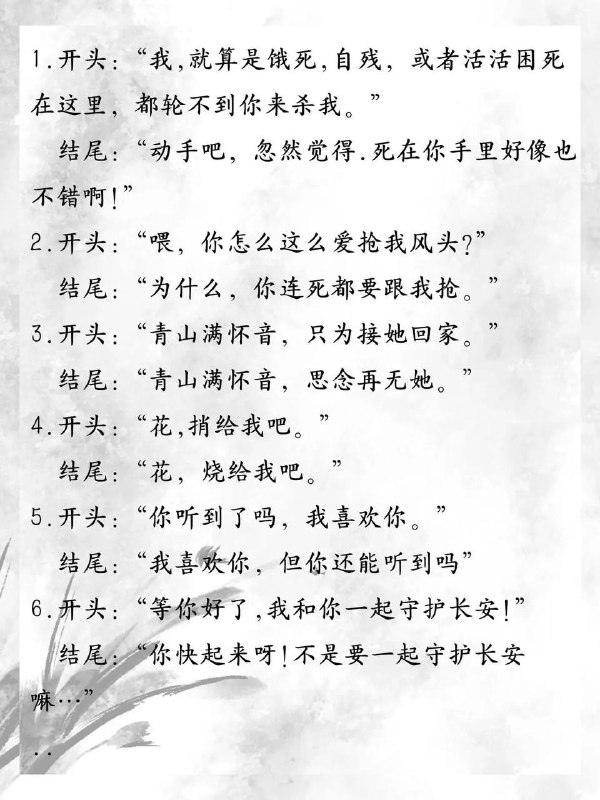 1.开头：“我,就算是饿死,自残，或者活活困死
在这里，都轮不到你来杀我。”
结尾：“动手吧，忽然觉得.死在你手里好像也
不错啊!”
2.开头：“喂，你怎么这么爱抢我风头?”
结尾：“为什么，你连死都要跟我抢。”
3.开头：“青山满怀音，只为接她回家。”
结尾：“青山满怀音，思念再无她。”
4.开头：“花,捎给我吧。”
结尾：“花，烧给我吧。”
5.开头：“你听到了吗，我喜欢你。”
结尾：“我喜欢你，但你还能听到吗”
6.开头：“等你好了,我和你一起守护长安!”
结尾：“你快起来呀!不是要一起守护长安
嘛…”
..